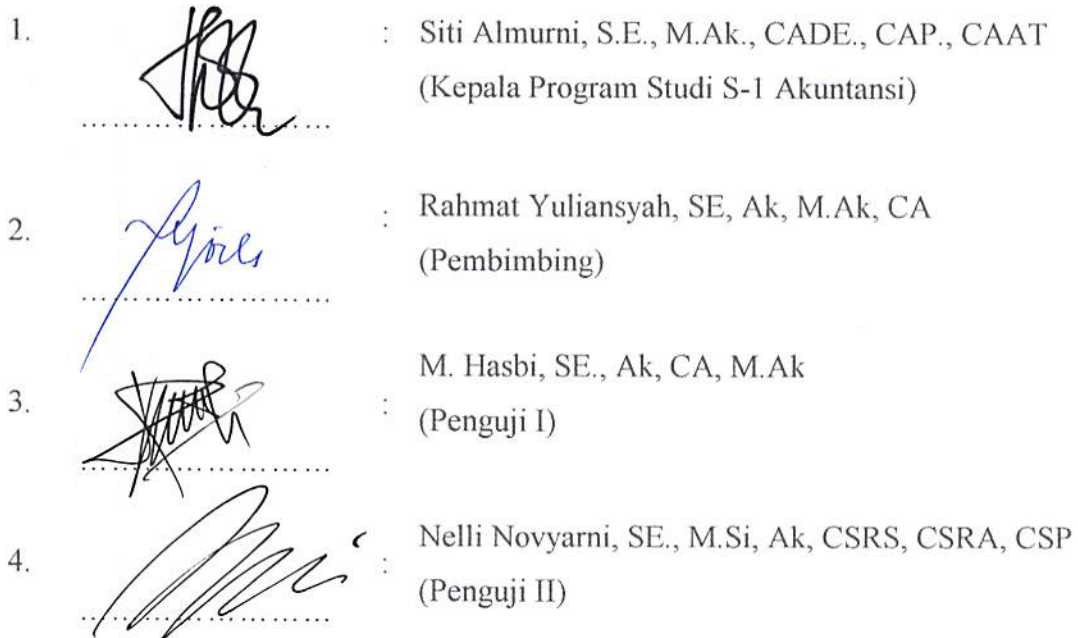 1. : Siti Almurni, S.E., M.Ak., CADE., CAP., CAAT
(Kepala Program Studi S-1 Akuntansi)
2. : Rahmat Yuliansyah, SE, Ak, M.Ak, CA
(Pembimbing)
3. : M. Hasbi, SE., Ak, CA, M.Ak
(Penguji I)
4. : Nelli Novyarni, SE., M.Si, Ak, CSRS, CSRA, CSP
(Penguji II)